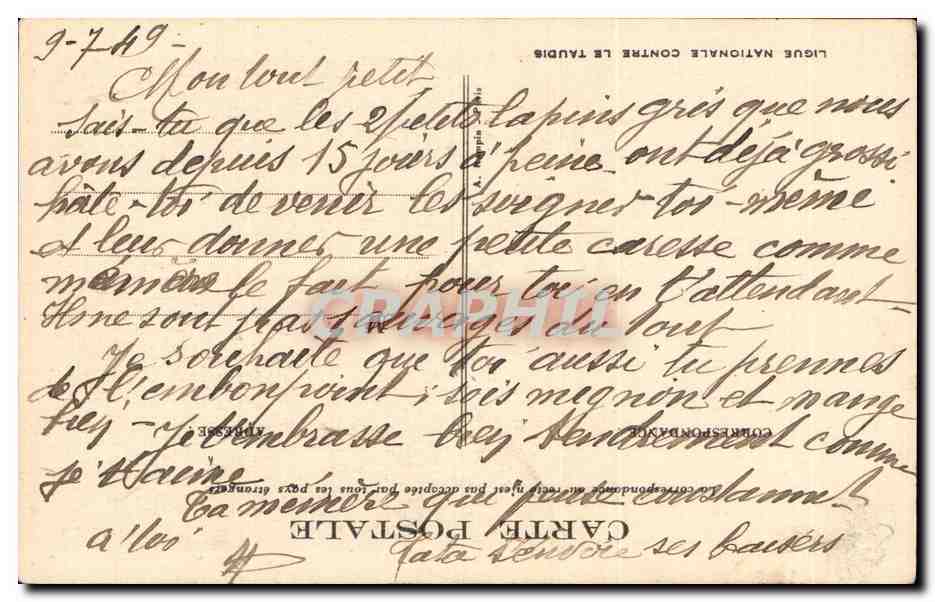 9-7-49-
Mon tout petit
sais-tu que les 2 petits lapins gris que nous
avons depuis 15 jours à peine ont déjà grossi
hâte-toi de venir les soigner toi-même
et leur donner une petite caresse comme
mémère le fait pour toi en t'attendant
Ils ne sont pas sauvages du tout
Je souhaite que toi aussi tu prennes
de l'embonpoint, sois mignon et mange
bien - Je t'embrasse bien tendrement comme
je t'aime
Ta mémère qui pense constamment
à toi
Tata t'envoie ses baisers
LIGUE NATIONALE CONTRE LE TAUDIS
CORRESPONDANCE
ADRESSE
La correspondance au recto n'est pas acceptée par tous les pays étrangers
CARTE POSTALE
CPAPHIL